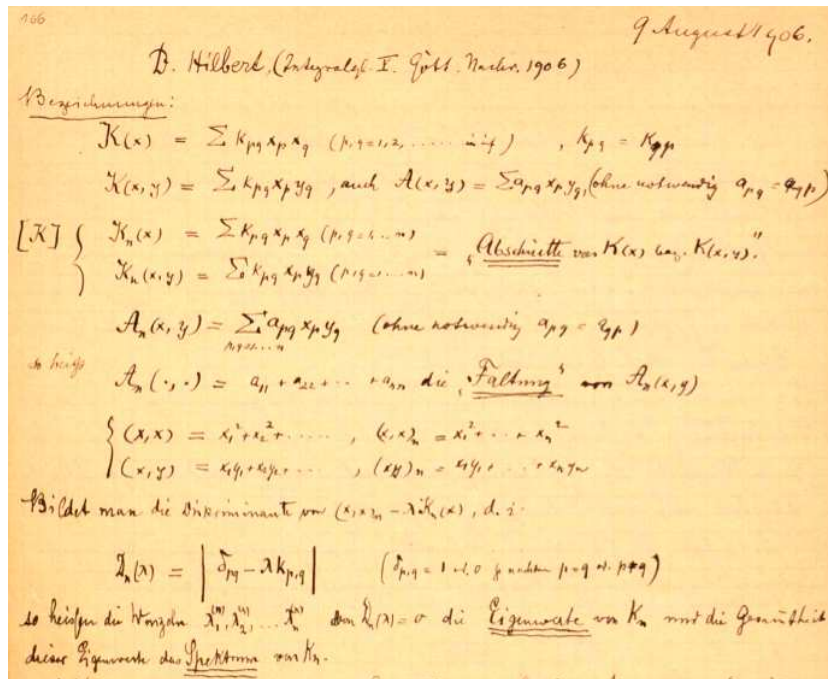 166
9 August 1906.
D. Hilbert. (Integralgl. I. Gött. Nachr. 1906)
Bezeichnungen:
K(x) = Σ k_pq x_p x_q (p,q=1,2,...... inf) , k_pq = k_qp
K(x,y) = Σ k_pq x_p y_q , auch A(x,y) = Σ a_pq x_p y_q, (ohne notwendig a_pq = a_qp)
[K] { K_n(x) = Σ k_pq x_p x_q (p,q=1,...n)
K_n(x,y) = Σ k_pq x_p y_q (p,q=1...n) = „Abschnitte von K(x) bzw. K(x,y)."
A_n(x,y) = Σ a_pq x_p y_q (ohne notwendig a_pq = a_qp)
p,q=1,...n
so heißt A_n(·,·) = a_11 + a_22 + ·· + a_nn die „Faltung" von A_n(x,y)
{ (x,x) = x_1² + x_2² + ..... , (x,x)_n = x_1² + ·· + x_n²
(x,y) = x_1y_1 + x_2y_2 + ... , (xy)_n = x_1y_1 + ... + x_ny_n
Bildet man die Diskriminante von (x,x)_n − λK_n(x), d. i.
D_n(λ) = | δ_pq − λk_p,q | (δ_p,q = 1 od. 0 je nachdem p=q od. p≠q)
so heißen die Wurzeln λ_1^(n), λ_2^(n), ... λ_n^(n) von D_n(λ) = 0 die Eigenwerte von K_n und die Gesamtheit
dieser Eigenwerte das Spektrum von K_n.